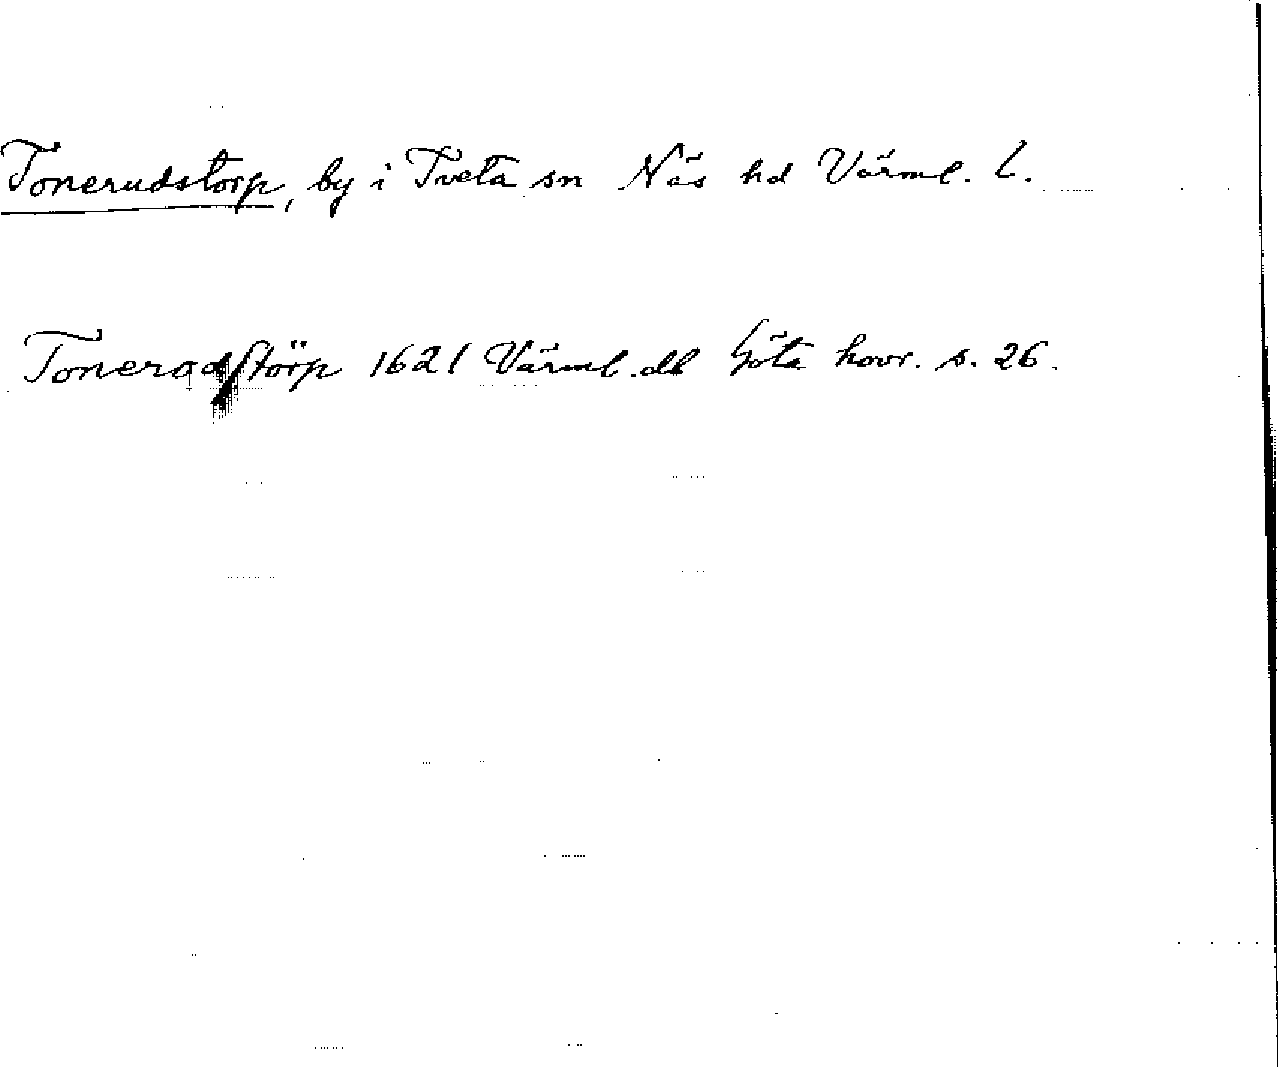 Tonerudstorp, by i Tveta sn Näs hd Värml. L.
Toneradstörp 1621 Värml. db Göta hovr. s. 26.